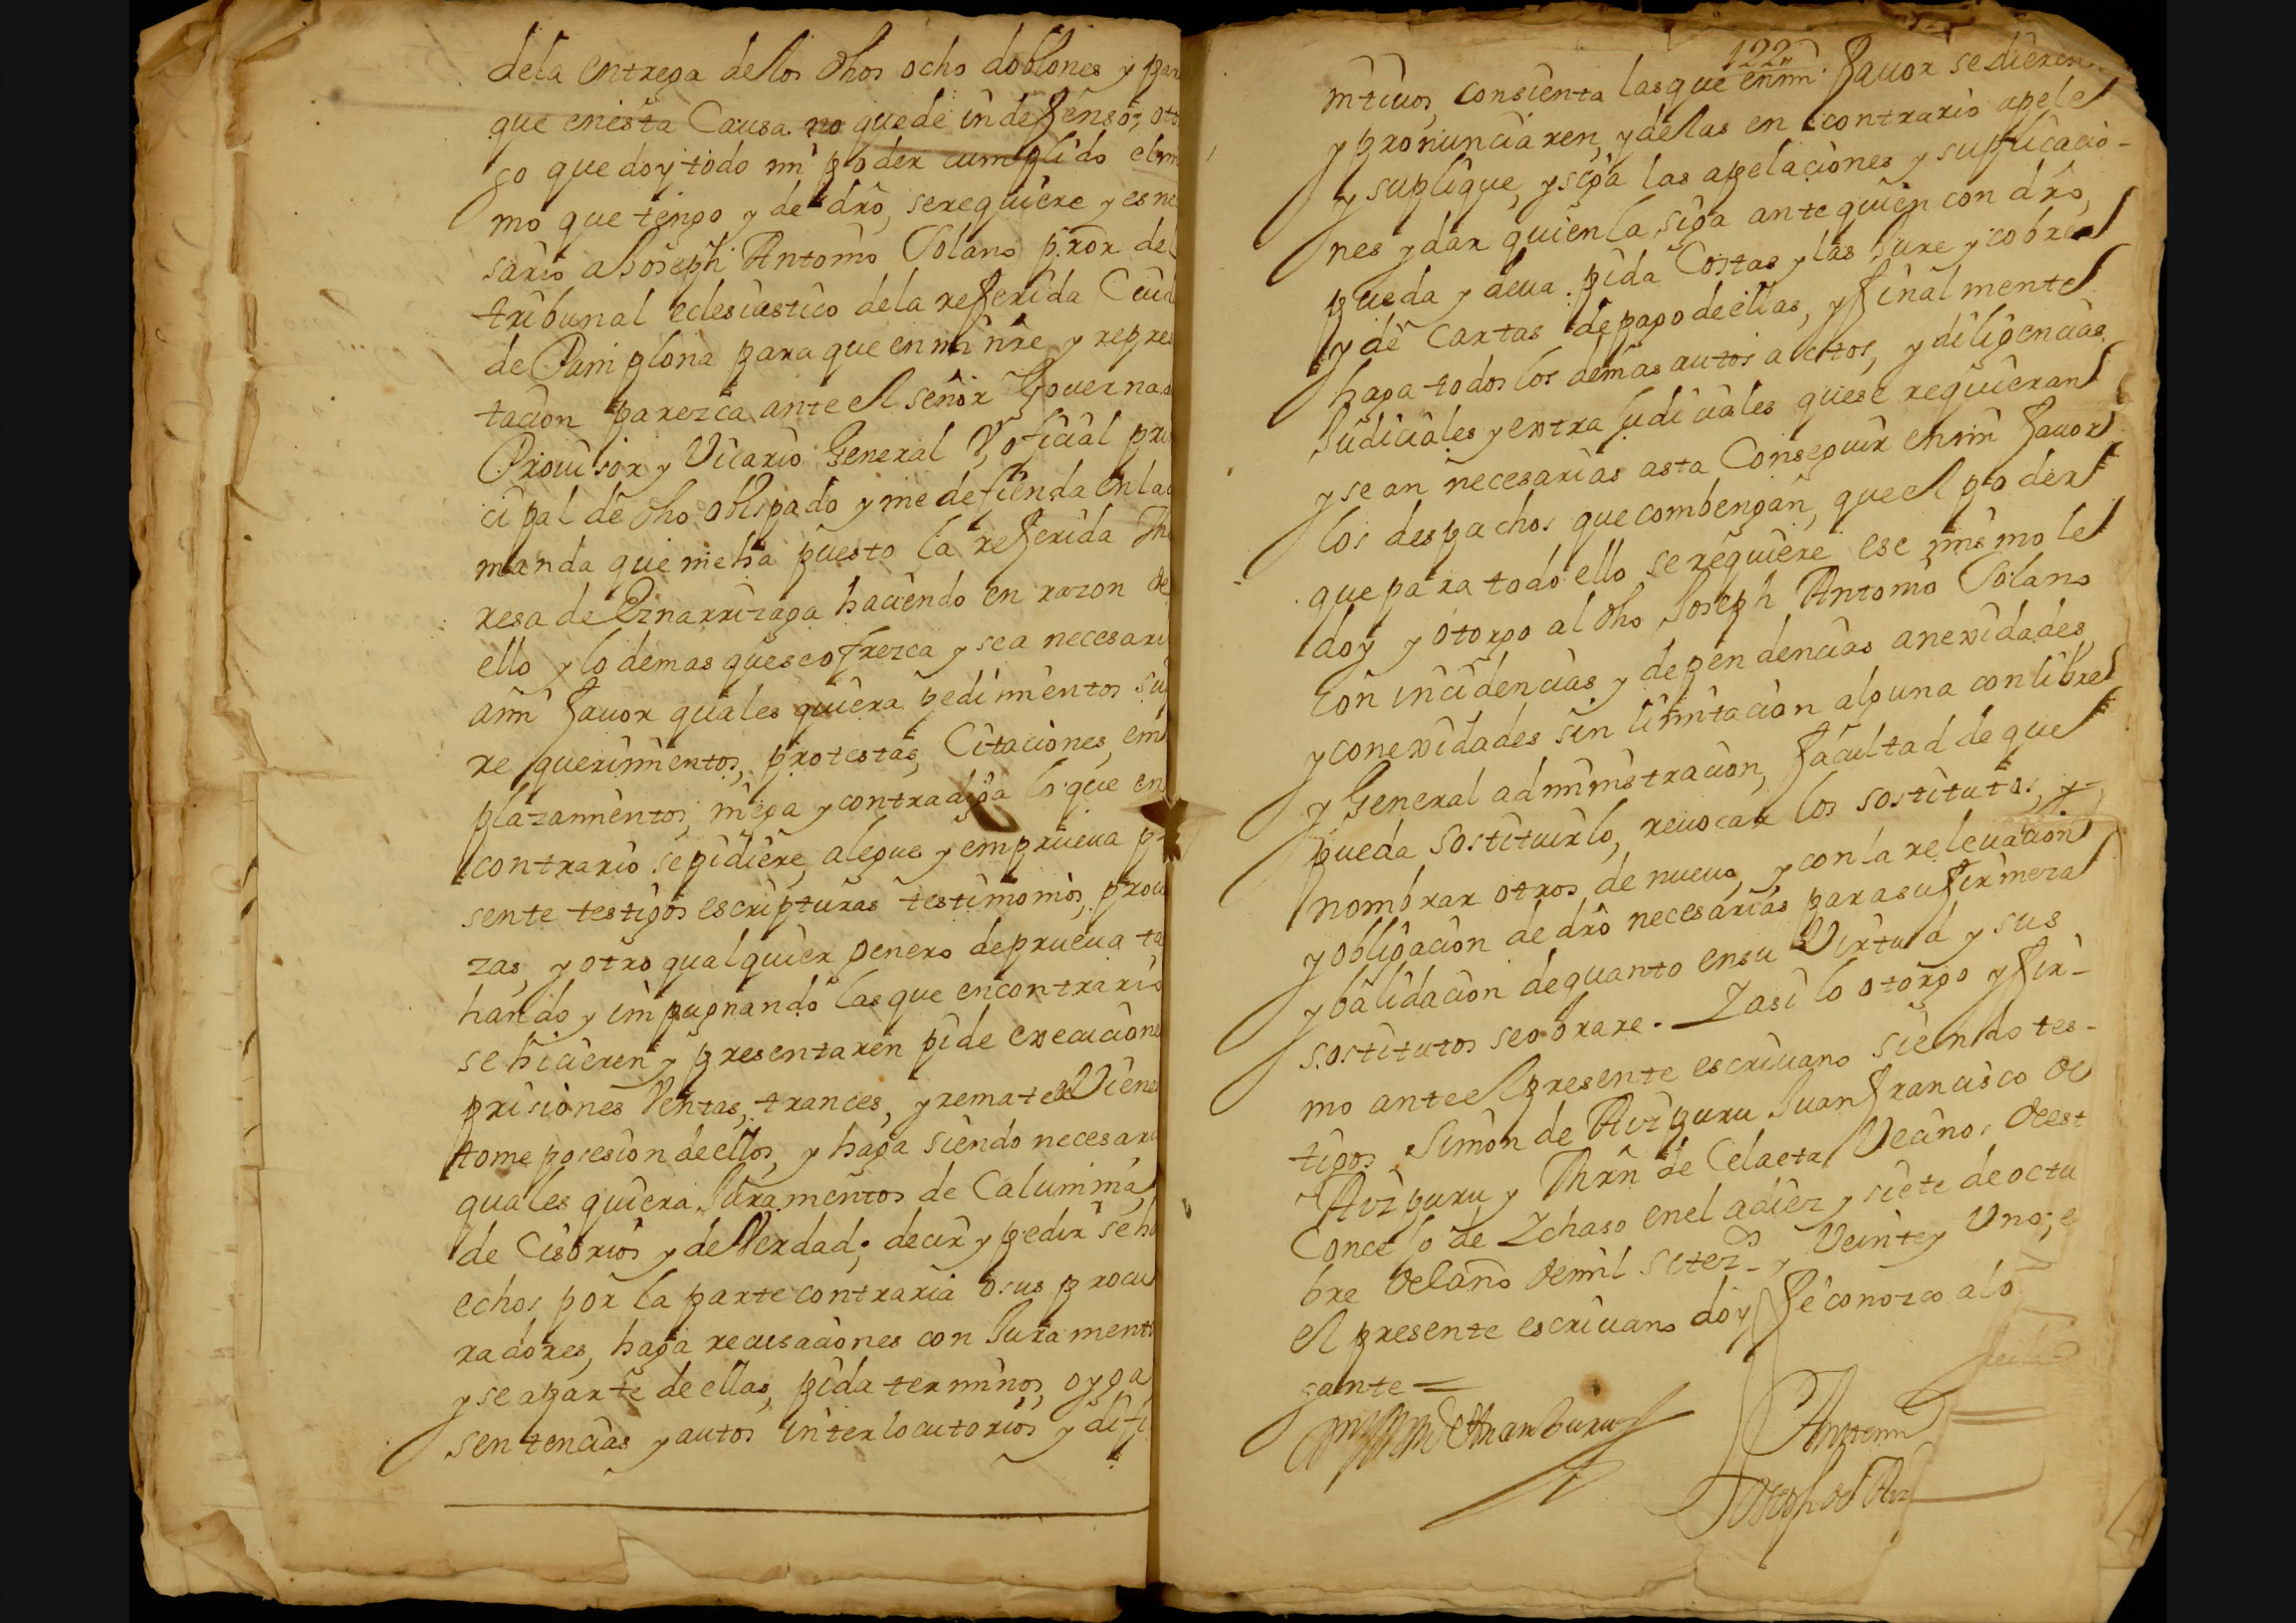 dela entrega dellos dhos ocho doblones y par
que enesta Causa no quede indefenso, oto
go que doy todo mi poder cumplido elmi
mo que tengo y de dro, serequiere y es ne
sario a Joseph Antonio Solano pror del
tribunal eclesiastico dela referida Ciud
de Pamplona para que en mi nre y repres
tacion parezca ante el señor Governad
Provisor y Vicario General y oficial prin
cipal de dho obispado y me defienda enla
manda que meha puesto la referida The
resa de Eznarrizaga haciendo en razon de
ello y lo demas quese ofrezca y sea necesari
ami favor quales quiera pedimentos su
requerimientos, protestas, Citaciones, em
plazamientos, niega y contradiga lo que en
contrario sepidiere, alegue y emprueva pre
sente testigos escripturas testimonios, prou
zas, y otro qualquier genero deprueva ta
hando y impugnando las que encontrario
se hicieren y presentaren pide execucione
prisiones Ventas, trances, y remate de Viene
tome posesion deellos, y haga siendo necesari
quales quiera Juramentos de Calumnia,
de Cisorios y deVerdad; decir y pedir se ha
echos por la parte contraria o sus procu
radores, haga recusaciones con Juramento
y se aparte deellas, pida terminos, oyga
sentencias y autos interlocutorios y difi
122
nitivos, consienta lasque enmi favor se dieren
y pronunciaren, y dellas en contrario apele
y suplique, y siga las apelaciones y suplicacio-
nes y dar quienla siga ante quien con dro,
pueda y deva. pida Costas y las Jure y cobre
y de Cartas de pago deellas, y finalmente
haga todos los demas autos actos, y diligencias
Judiciales y extra judiciales quese requieran
y sean necesarias asta Conseguir enmi favor
los despachos que combengan, que el poder
que para todo ello serequiere ese mismo le
doy y otorgo al dho Joseph Antonio Solano
con incidencias y dependencias anexidades
y conexidades sin limitacion alguna con libre
y General administracion, facultad de que
pueda sostituirlo, revocar los sostitutos, y
nombrar otros de nuevo, y con la relevacion
y obligacion de dro necesarias para su firmeza
y balidacion dequanto ensu Virtud y sus
sostitutos seobrare. Y asi lo otorgo y fir-
mo ante el presente escrivano siendo tes-
tigos Simon de Aizpuru Juan francisco de
Aizpuru y Thrn de Celaeta Vecinos deest
Concejo de Ichaso enel a diez y siete de octu
bre del año demil setezs y Veinte y Uno; e
el presente escrivano doy fe conozco alo
gante =
de Aramburu
Antemi
Joseph de Aiz